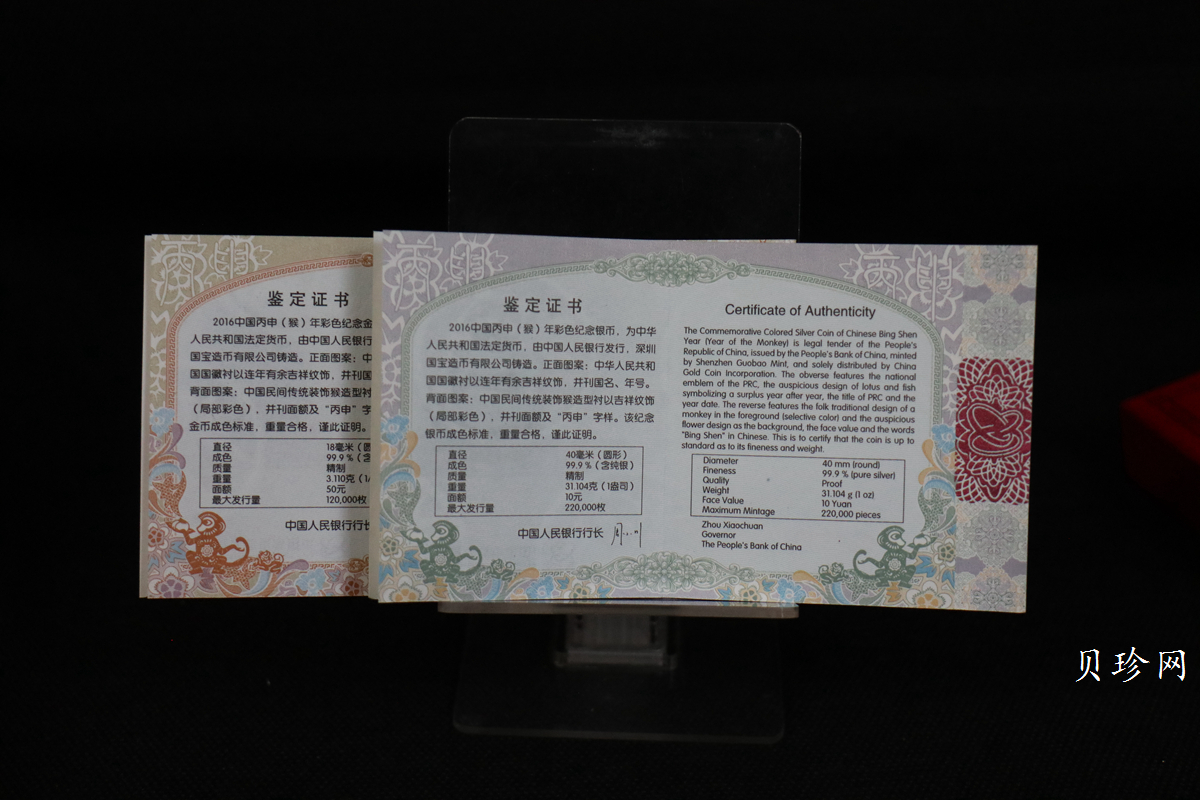 鉴定证书
2016中国丙申（猴）年彩色纪念金
人民共和国法定货币，由中国人民银行
国宝造币有限公司铸造。正面图案：中
国国徽衬以连年有余吉祥纹饰，并刊国
背面图案：中国民间传统装饰猴造型衬
（局部彩色），并刊面额及“丙申”字
金币成色标准，重量合格，谨此证明。
直径 18毫米（圆
成色 99.9％（含
质量 精制
重量 3.110克（1/
面额 50元
最大发行量 120,000枚
中国人民银行行长
鉴定证书
2016中国丙申（猴）年彩色纪念银币，为中华
人民共和国法定货币，由中国人民银行发行，深圳
国宝造币有限公司铸造。正面图案：中华人民共和
国国徽衬以连年有余吉祥纹饰，并刊国名、年号。
背面图案：中国民间传统装饰猴造型衬以吉祥纹饰
（局部彩色），并刊面额及“丙申”字样。该纪念
银币成色标准，重量合格，谨此证明。
直径 40毫米（圆形）
成色 99.9％（含纯银）
质量 精制
重量 31.104克（1盎司）
面额 10元
最大发行量 220,000枚
中国人民银行行长
Certificate of Authenticity
The Commemorative Colored Silver Coin of Chinese Bing Shen
Year (Year of the Monkey) is legal tender of the People's
Republic of China, issued by the People's Bank of China, minted
by Shenzhen Guobao Mint, and solely distributed by China
Gold Coin Incorporation. The obverse features the national
emblem of the PRC, the auspicious design of lotus and fish
symbolizing a surplus year after year, the title of PRC and the
year date. The reverse features the folk traditional design of a
monkey in the foreground (selective color) and the auspicious
flower design as the background, the face value and the words
"Bing Shen" in Chinese. This is to certify that the coin is up to
standard as to its fineness and weight.
Diameter 40 mm (round)
Fineness 99.9 % (pure silver)
Quality Proof
Weight 31.104 g (1 oz)
Face Value 10 Yuan
Maximum Mintage 220,000 pieces
Zhou Xiaochuan
Governor
The People's Bank of China
贝珍网